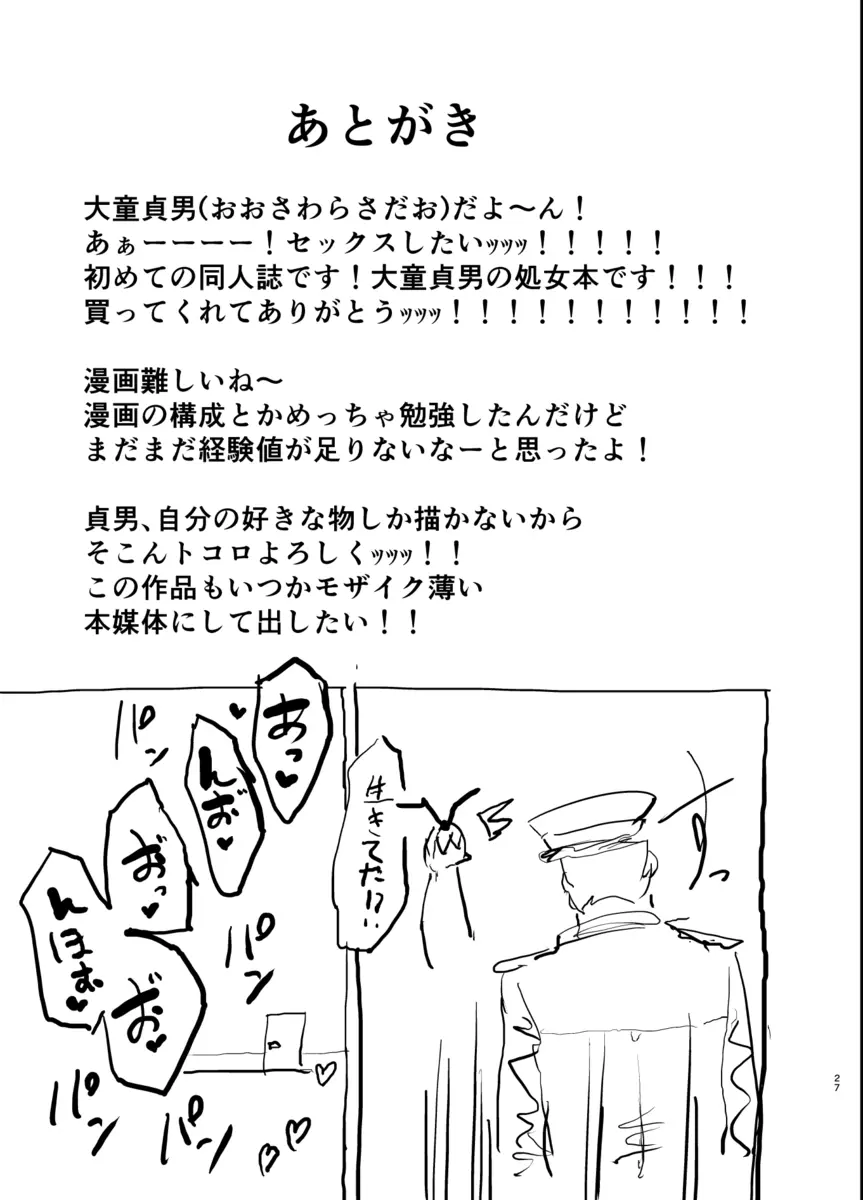 あとがき
大童貞男(おおさわらさだお)だよ～ん！
あぁーーーー！セックスしたいｯｯｯ！！！！！
初めての同人誌です！大童貞男の処女本です！！！
買ってくれてありがとうｯｯｯ！！！！！！！！！！！
漫画難しいね～
漫画の構成とかめっちゃ勉強したんだけど
まだまだ経験値が足りないなーと思ったよ！
貞男、自分の好きな物しか描かないから
そこんトコロよろしくｯｯｯ！！
この作品もいつかモザイク薄い
本媒体にして出したい！！
スッ
生きてた!?
あっ♥
んお♥
おっ♥
んほお♥
お♥
パン
パン
パン
パン
27